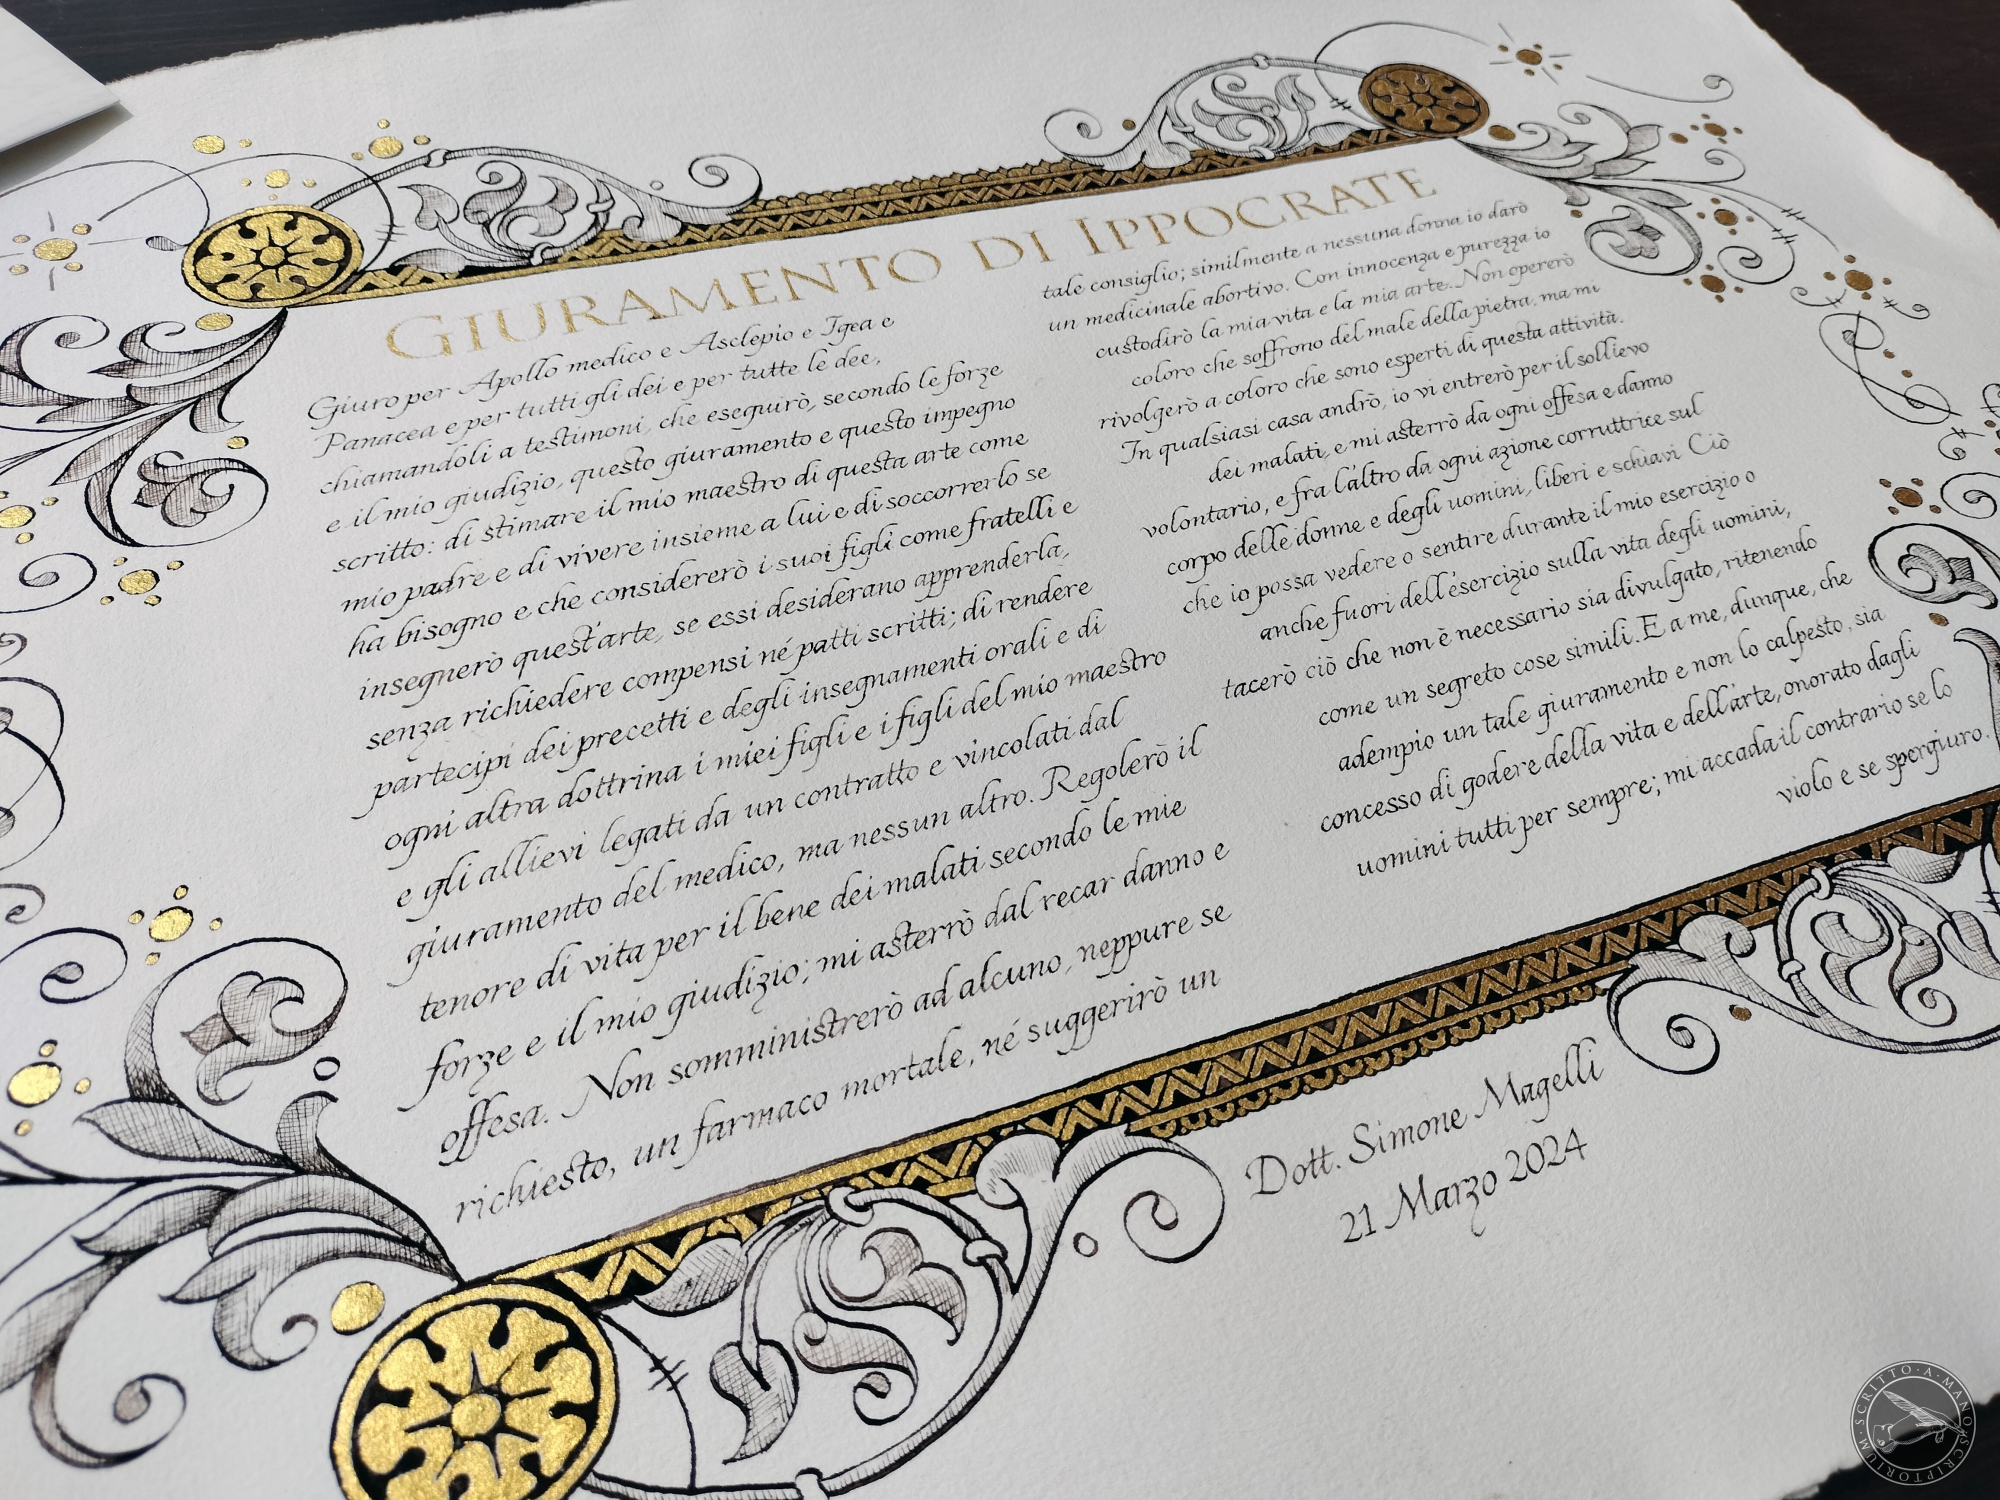 GIURAMENTO DI IPPOCRATE
Giuro per Apollo medico e Asclepio e Igea e
Panacea e per tutti gli dei e per tutte le dee,
chiamandoli a testimoni, che eseguirò, secondo le forze
e il mio giudizio, questo giuramento e questo impegno
scritto: di stimare il mio maestro di questa arte come
mio padre e di vivere insieme a lui e di soccorrerlo se
ha bisogno e che considererò i suoi figli come fratelli e
insegnerò quest'arte, se essi desiderano apprenderla,
senza richiedere compensi né patti scritti; di rendere
partecipi dei precetti e degli insegnamenti orali e di
ogni altra dottrina i miei figli e i figli del mio maestro
e gli allievi legati da un contratto e vincolati dal
giuramento del medico, ma nessun altro. Regolerò il
tenore di vita per il bene dei malati secondo le mie
forze e il mio giudizio; mi asterrò dal recar danno e
offesa. Non somministrerò ad alcuno, neppure se
richiesto, un farmaco mortale, né suggerirò un
tale consiglio; similmente a nessuna donna io darò
un medicinale abortivo. Con innocenza e purezza io
custodirò la mia vita e la mia arte. Non opererò
coloro che soffrono del male della pietra, ma mi
rivolgerò a coloro che sono esperti di questa attività.
In qualsiasi casa andrò, io vi entrerò per il sollievo
dei malati, e mi asterrò da ogni offesa e danno
volontario, e fra l'altro da ogni azione corruttrice sul
corpo delle donne e degli uomini, liberi e schiavi Ciò
che io possa vedere o sentire durante il mio esercizio o
anche fuori dell'esercizio sulla vita degli uomini,
tacerò ciò che non è necessario sia divulgato, ritenendo
come un segreto cose simili. E a me, dunque, che
adempio un tale giuramento e non lo calpesto, sia
concesso di godere della vita e dell'arte, onorato dagli
uomini tutti per sempre; mi accada il contrario se lo
violo e se spergiuro.
Dott. Simone Magelli
21 Marzo 2024
SCRITTO·A·MANO SCRIPTORIUM